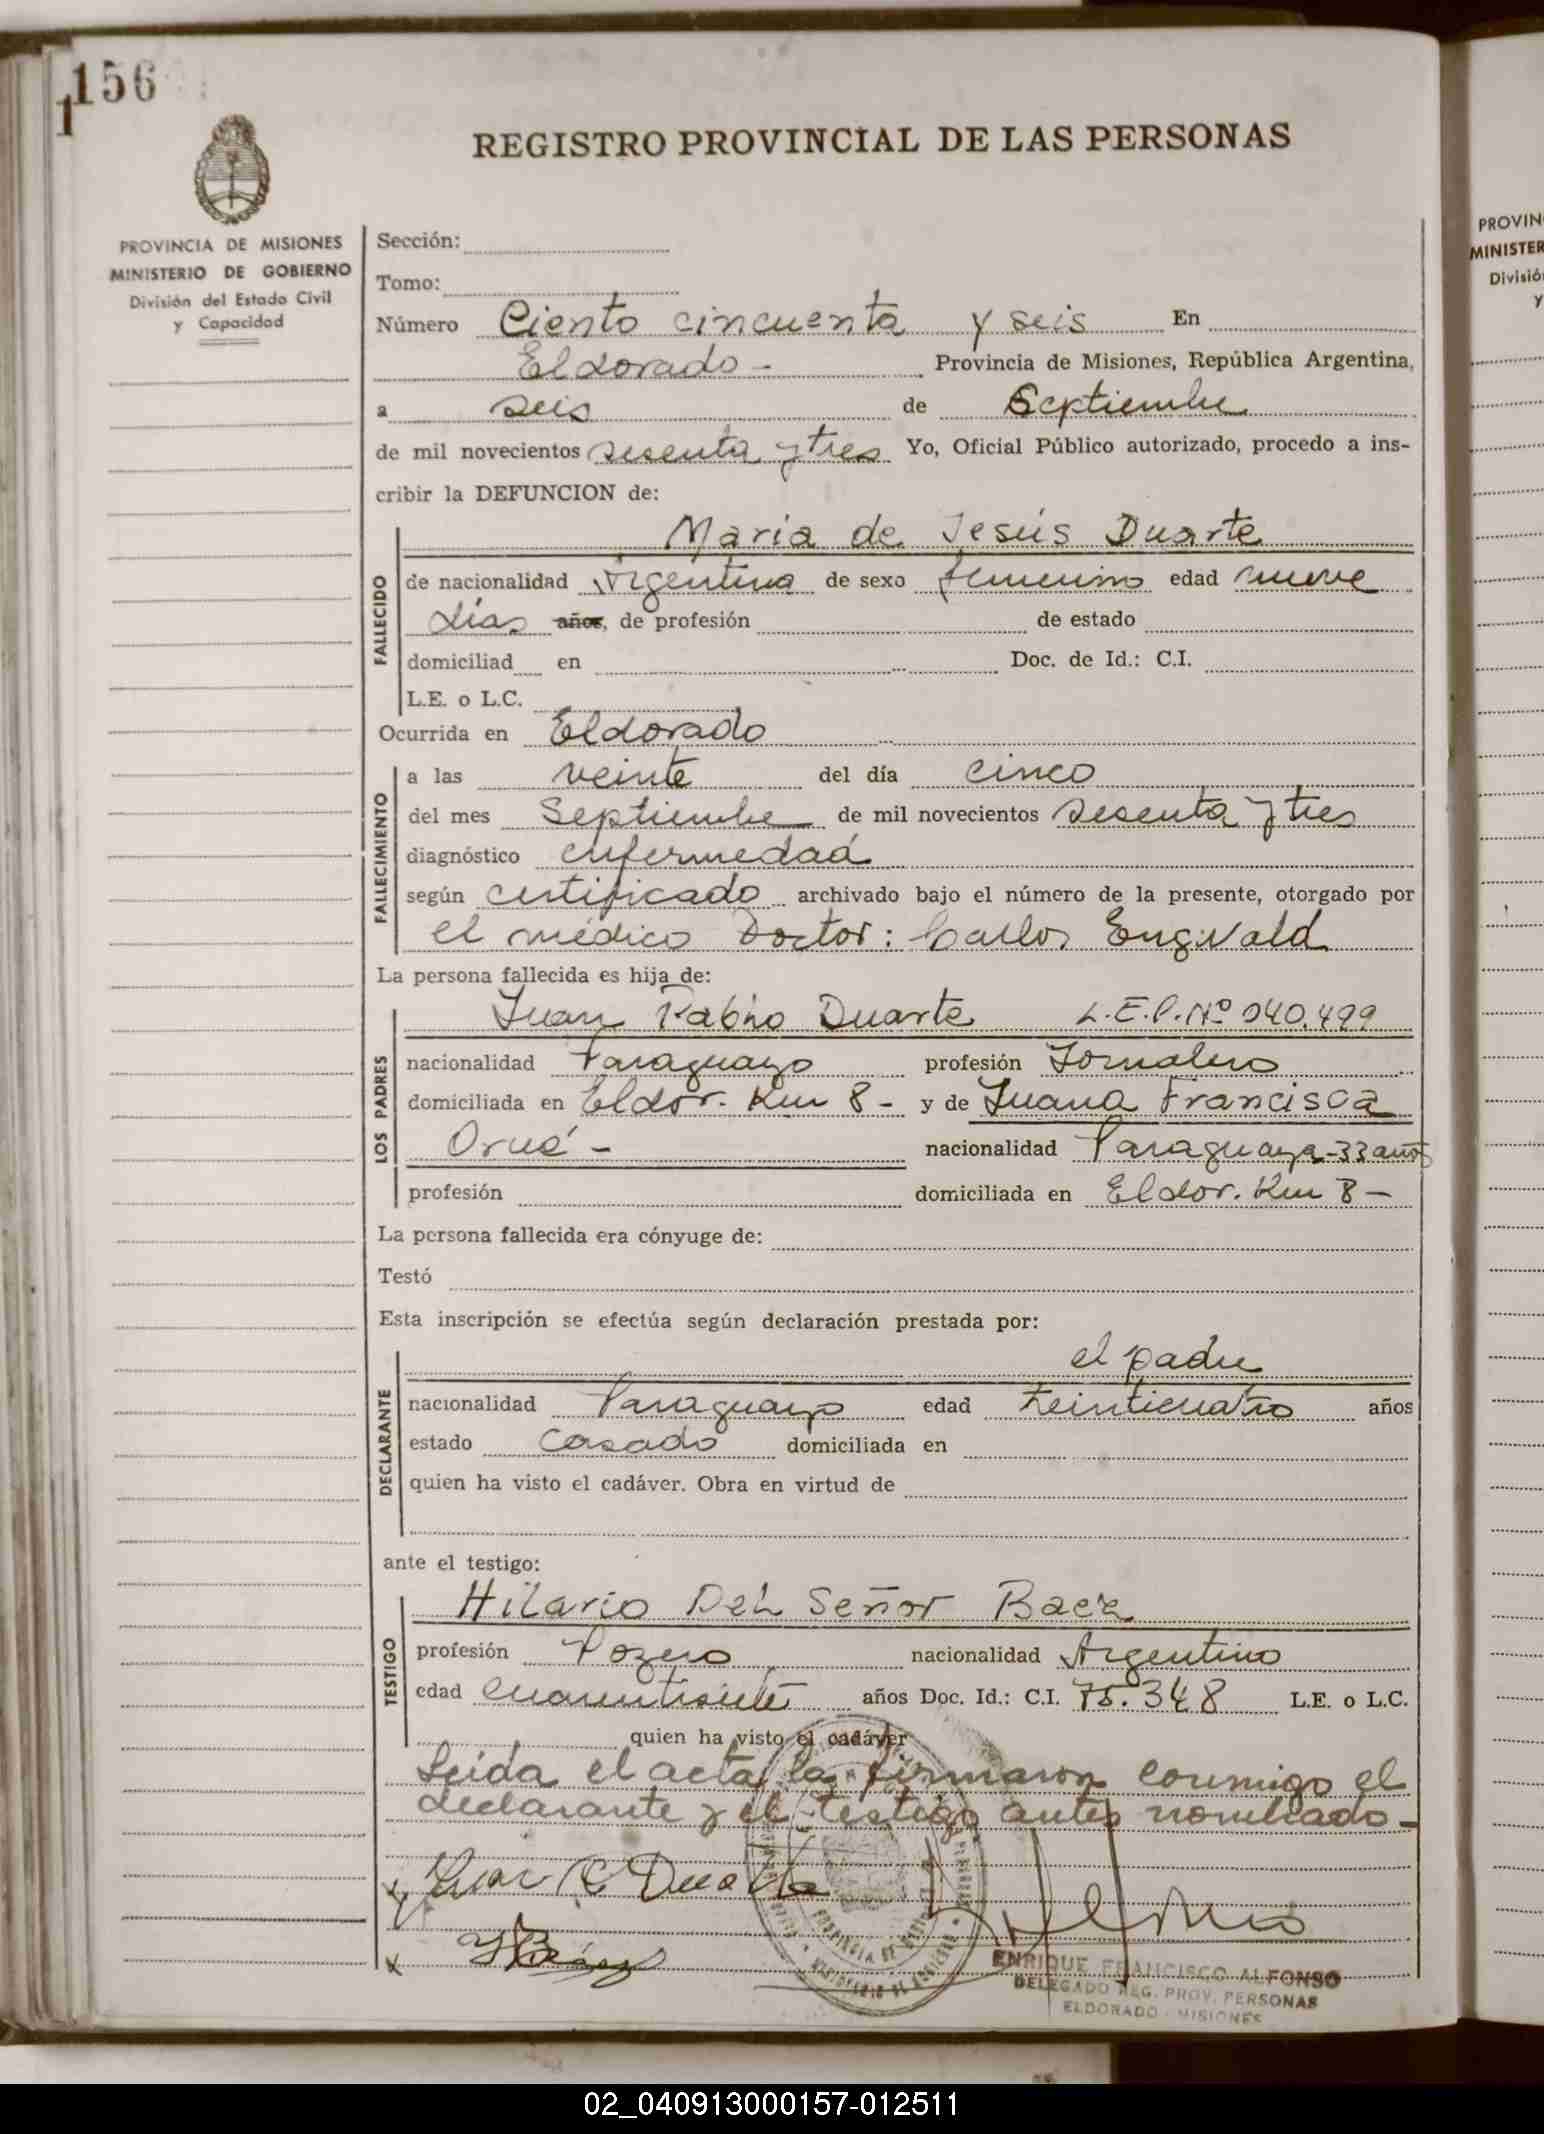 156
1
REGISTRO PROVINCIAL DE LAS PERSONAS
PROVINCIA DE MISIONES
MINISTERIO DE GOBIERNO
División del Estado Civil
y Capacidad
Sección:
Tomo:
Número Ciento cincuenta y seis En
Eldorado - Provincia de Misiones, República Argentina,
a seis de Septiembre
de mil novecientos sesenta y tres Yo, Oficial Público autorizado, procedo a ins-
cribir la DEFUNCION de:
FALLECIDO
Maria de Jesús Duarte
de nacionalidad Argentina de sexo femenino edad nueve
días años, de profesión de estado
domiciliad en Doc. de Id.: C.I.
L.E. o L.C.
Ocurrida en Eldorado
FALLECIMIENTO
a las veinte del día cinco
del mes Septiembre de mil novecientos sesenta y tres
diagnóstico enfermedad
según certificado archivado bajo el número de la presente, otorgado por
el médico Doctor: Carlos Engwald
La persona fallecida es hija de:
LOS PADRES
Juan Duarte Nº 040.499
nacionalidad Paraguayo profesión Jornalero
domiciliada en Eldor. Km 8 - y de Juana Francisca
Orué - nacionalidad Paraguaya - 33 años
profesión domiciliada en Eldor. Km 8 -
La persona fallecida era cónyuge de:
Testó
Esta inscripción se efectúa según declaración prestada por:
DECLARANTE
el padre
nacionalidad Paraguayo edad años
estado casado domiciliada en
quien ha visto el cadáver. Obra en virtud de
ante el testigo:
TESTIGO
Hilario Del Señor Baez
profesión Pozero nacionalidad Argentino
edad cuarentisiete años Doc. Id.: C.I. 75.348 L.E. o L.C.
quien ha visto el cadáver
Leida el acta, la firmaron conmigo el
declarante y el testigo antes nombrado -
x Juan P Duarte
x H Báez
ENRIQUE FRANCISCO ALFONSO
DELEGADO REG. PROV. PERSONAS
ELDORADO - MISIONES
PROVIN
MINISTER
Divisió
y
02_040913000157-012511